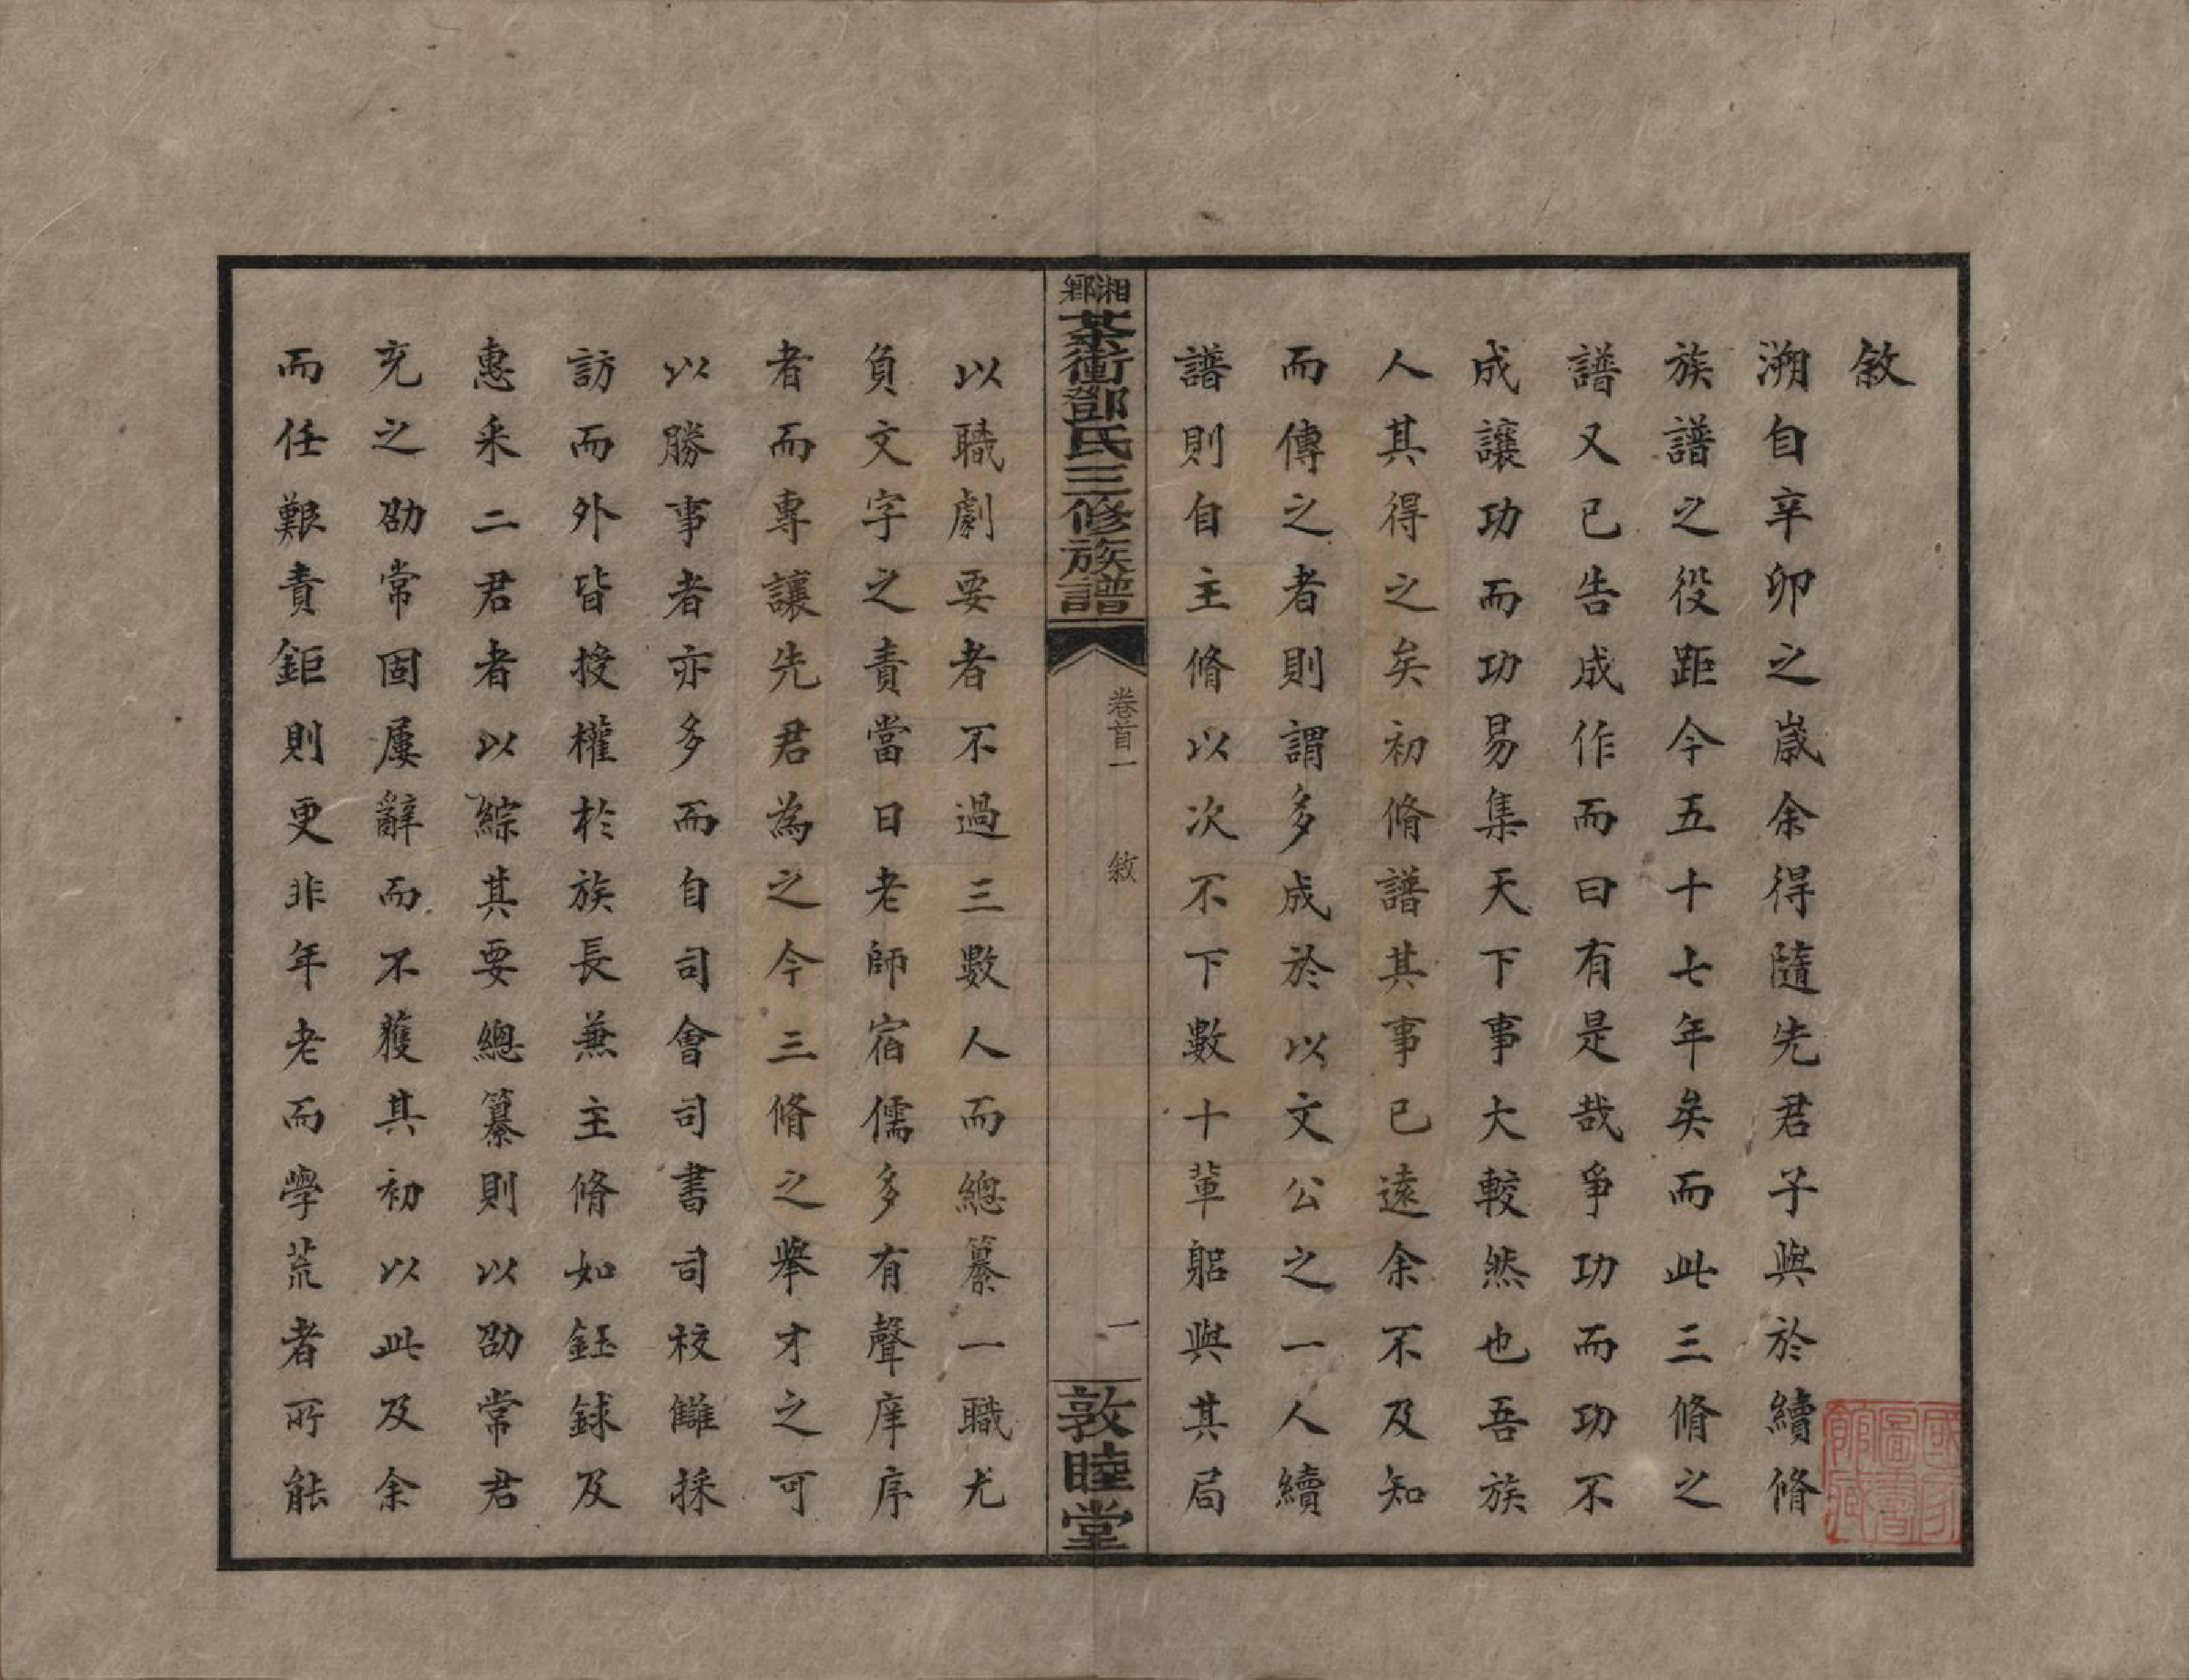 敘
溯自辛卯之歲余得隨先君子與於續脩
族譜之役距今五十七年矣而此三脩之
譜又已告成作而曰有是哉爭功而功不
成讓功而功易集天下事大較然也吾族
人其得之矣初脩譜其事已遠余不及知
而傳之者則謂多成於以文公之一人續
譜則自主脩以次不下數十輩躬與其局
湘鄉茶衝鄧氏三修族譜
卷首一
敘
一
敦睦堂
以職劇要者不過三數人而總纂一職尤
負文字之責當日老師宿儒多有聲庠序
者而專讓先君為之今三脩之舉才之可
以勝事者亦多而自司會司書司校讎採
訪而外皆授權於族長兼主脩如鈺銶及
惠釆二君者以綜其要總纂則以劭常君
充之劭常固屢辭而不獲其初以此及余
而任艱責鉅則更非年老而學荒者所能
國家圖書館藏